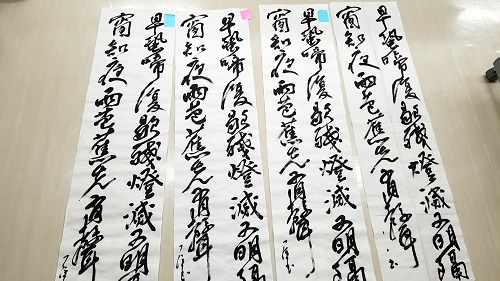 早蛩啼復歇殘燈滅又明隔
窗知夜雨芭蕉先有聲
早蛩啼復歇殘燈滅又明隔
窗知夜雨芭蕉先有聲
早蛩啼復歇殘燈滅又明隔
窗知夜雨芭蕉先有聲
早蛩啼復歇殘燈滅又明隔
窗知夜雨芭蕉先有聲